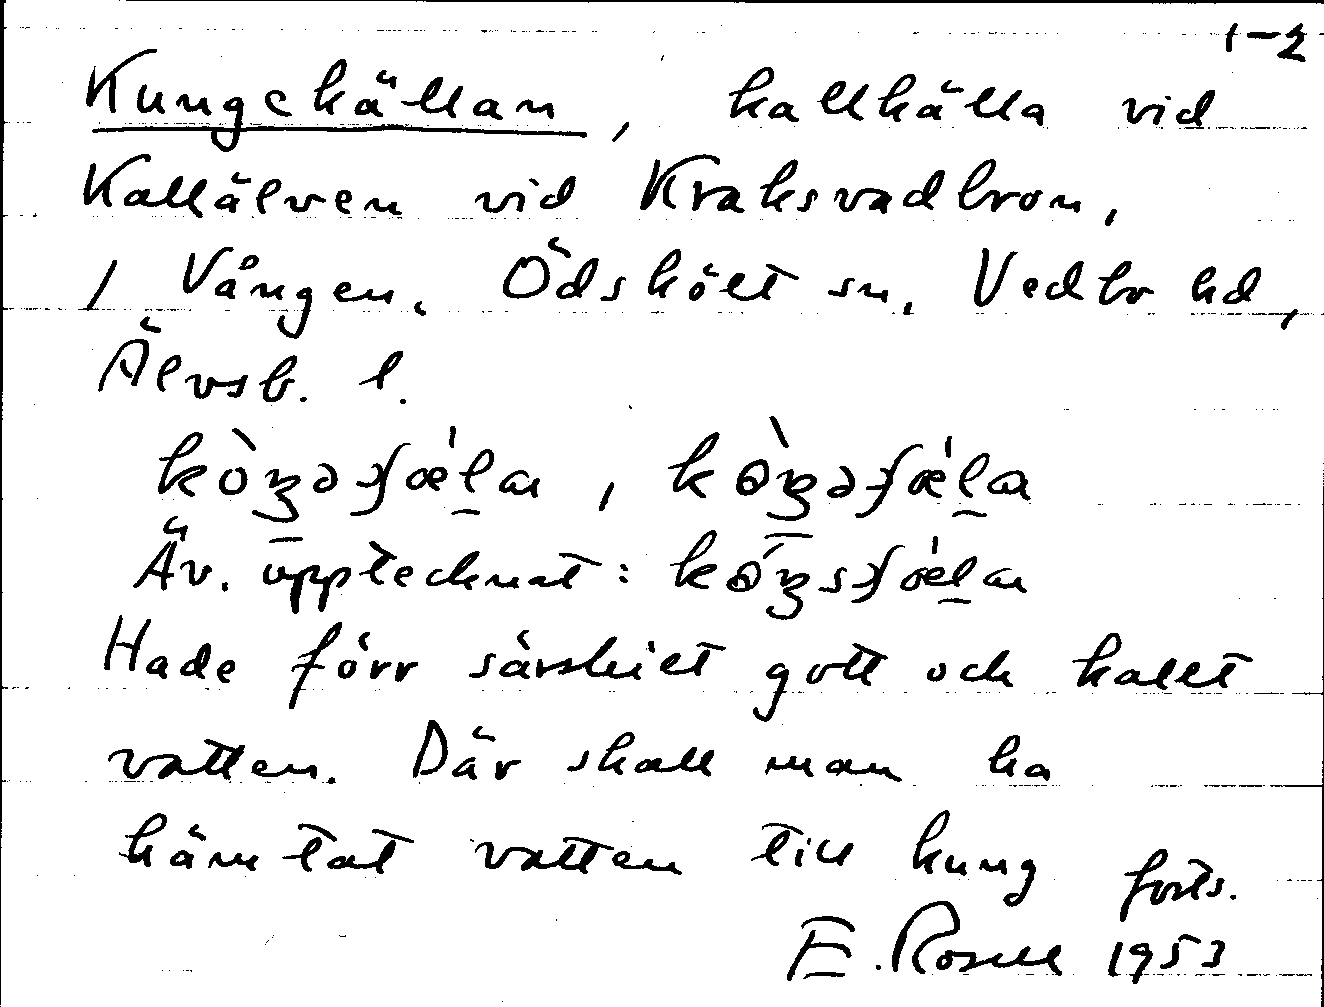 1-2
Kungekällan, kallkälla vid
Kallälven vid Kraksvadbron,
/ Vången. Ödskölt sn. Vedbo hd,
Älvsb. l.
Äv. upptecknat:
Hade förr särskilt gott och kallt
vatten. Där skall man ha
hämtat vatten till kung forts.
E. Rosell 1953